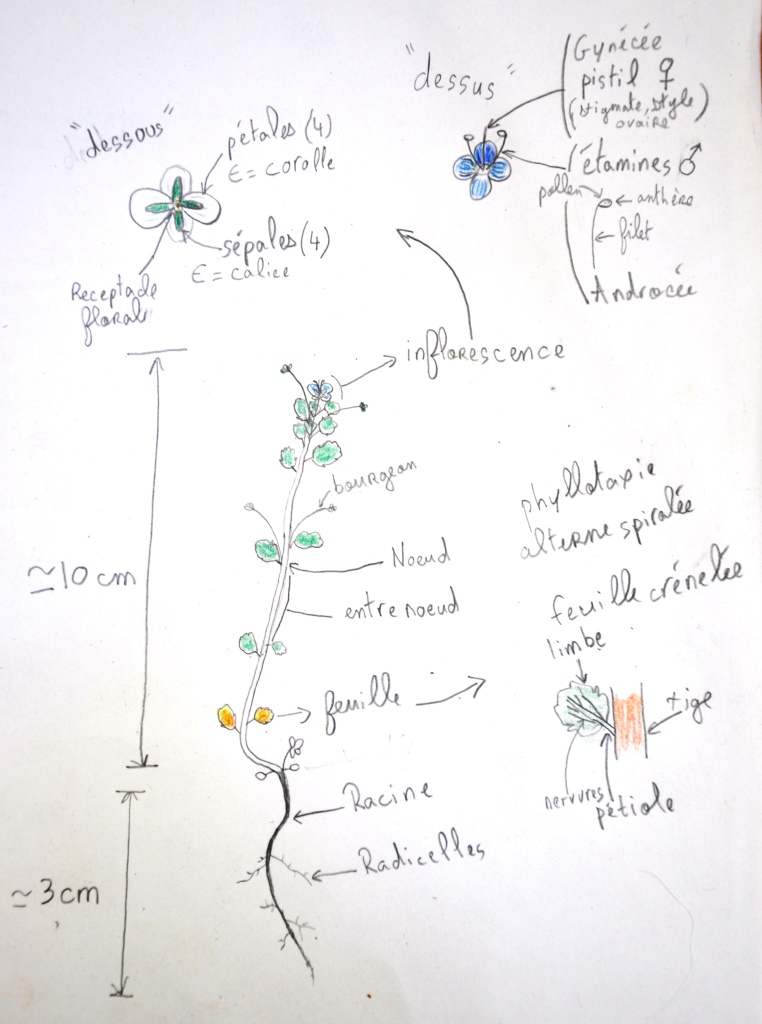 "dessous"
pétales (4)
∈ = corolle
sépales (4)
∈ = calice
Receptacle
floral
"dessus"
Gynécée
pistil ♀
(stigmate, style
ovaire)
étamines ♂
pollen
anthère
filet
Androcée
inflorescence
bourgeon
≃ 10 cm
Noeud
entre noeud
feuille
phyllotaxie
alterne spiralée
feuille crénelée
limbe
tige
nervures
pétiole
Racine
Radicelles
≃ 3 cm